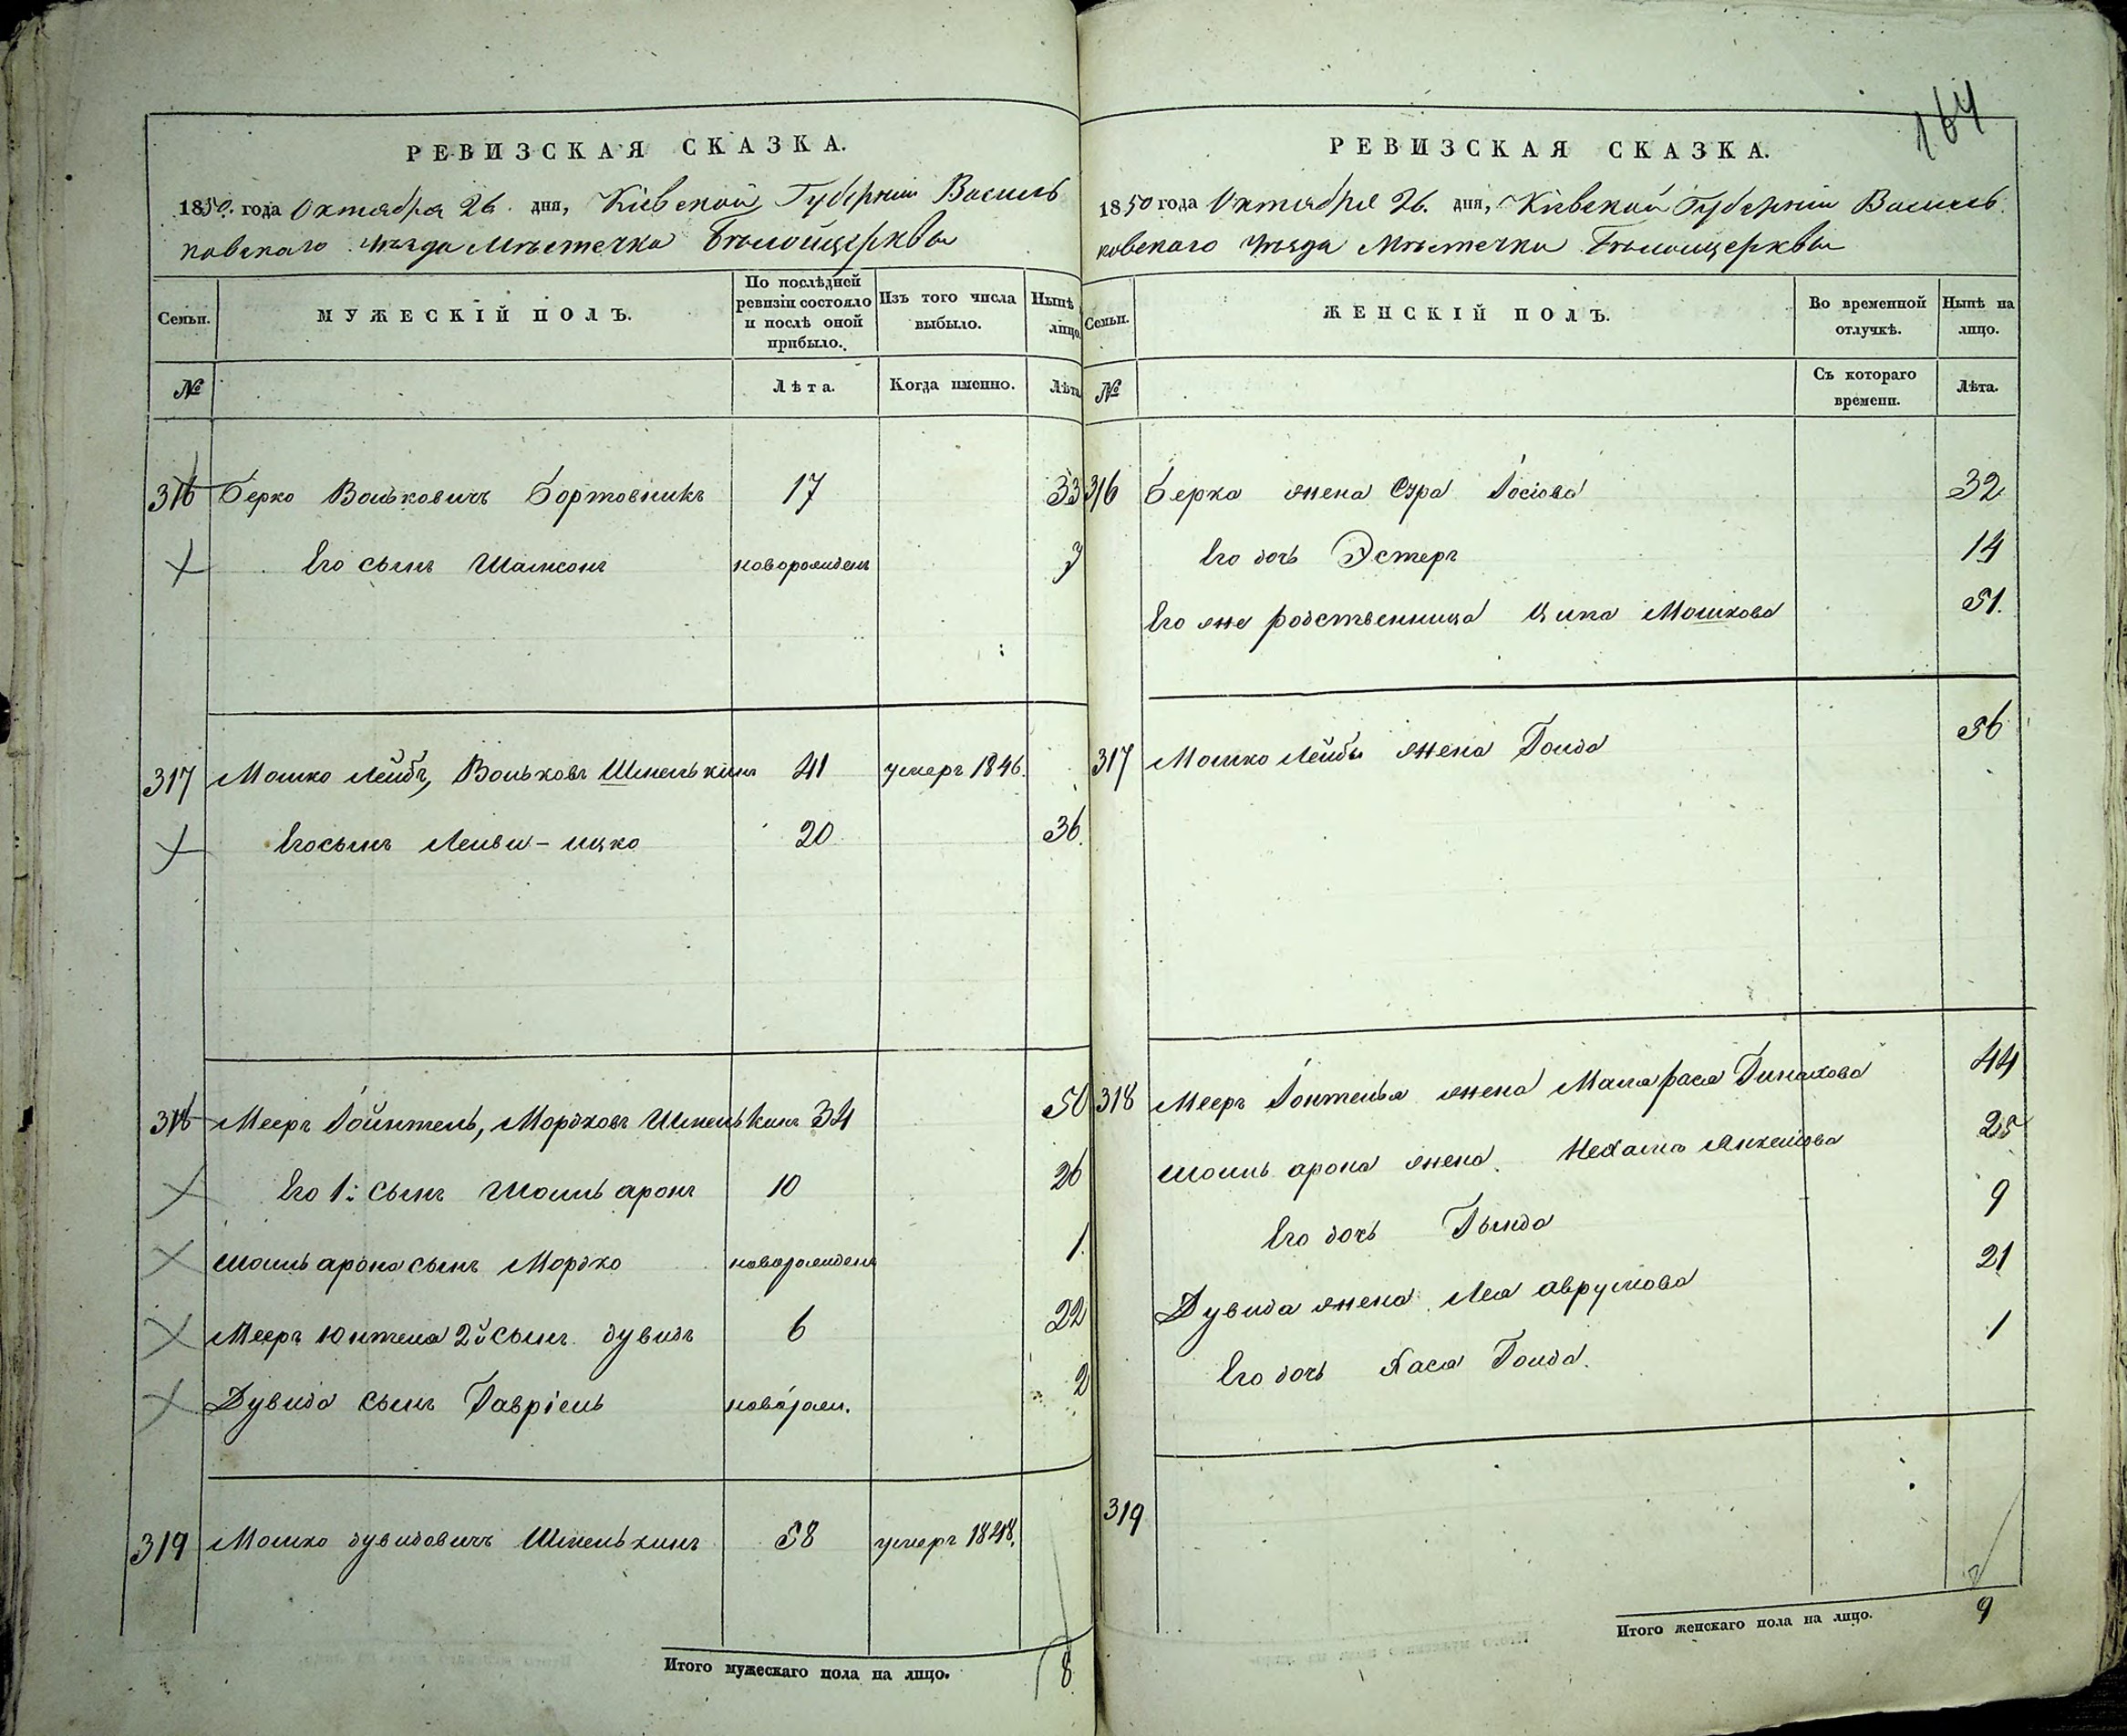 РЕВИЗСКАЯ СКАЗКА.
1850. года Октября 26. дня, Кіевской Губерніи Василь
ковскаго уѣзда Мѣстечка Бѣлойцерквы
Семьи.
МУЖЕСКІЙ ПОЛЪ.
По послѣдней ревизіи состояло и послѣ оной прибыло.
Изъ того числа выбыло.
Нынѣ на лицо.
№
Лѣта.
Когда именно.
Лѣта.
316 Берко Вольковичъ Бортовникъ 17 33
Его сынъ Шамсонъ новорожденъ 7
317 Мошко Лейбъ, Вольковъ Шпелькинъ 41 умеръ 1846.
Его сынъ Леиви-ицко 20 36.
318 Мееръ Іойнтель, Мордковъ Шпелькинъ 34 50
Его 1й сынъ Шоиль аронъ 10 26
Шоиль арона сынъ Мордко новорожденъ 1.
Мееръ Юнтеля 2й сынъ дувидъ 6 22
Дувида сынъ Гавріель новорож. 2
319 Мошко дувидовичъ Шпелькинъ 58 умеръ 1848.
Итого мужескаго пола на лицо. 8
164
РЕВИЗСКАЯ СКАЗКА.
1850 года Октября 26. дня, Кіевской Губерніи Василь
ковскаго уѣзда Мѣстечка Бѣлойцерквы
Семьи.
ЖЕНСКІЙ ПОЛЪ.
Во временной отлучкѣ.
Нынѣ на лицо.
№
Съ котораго времени.
Лѣта.
316 Берка жена Сура Іосіова 32
Его дочь Эстеръ 14
Его же родственница Ципа Мошкова 51.
317 Мошко Лейбы жена Голда 56
318 Мееръ Іонтеля жена Маля рася Пинахова 44
Шоиль арона жена Нехама Анкелиова 25
Его дочь Гинда 9
Дувида жена Лея аврумова 21
Его дочь Хася Голда. 1
319
Итого женскаго пола на лицо. 9